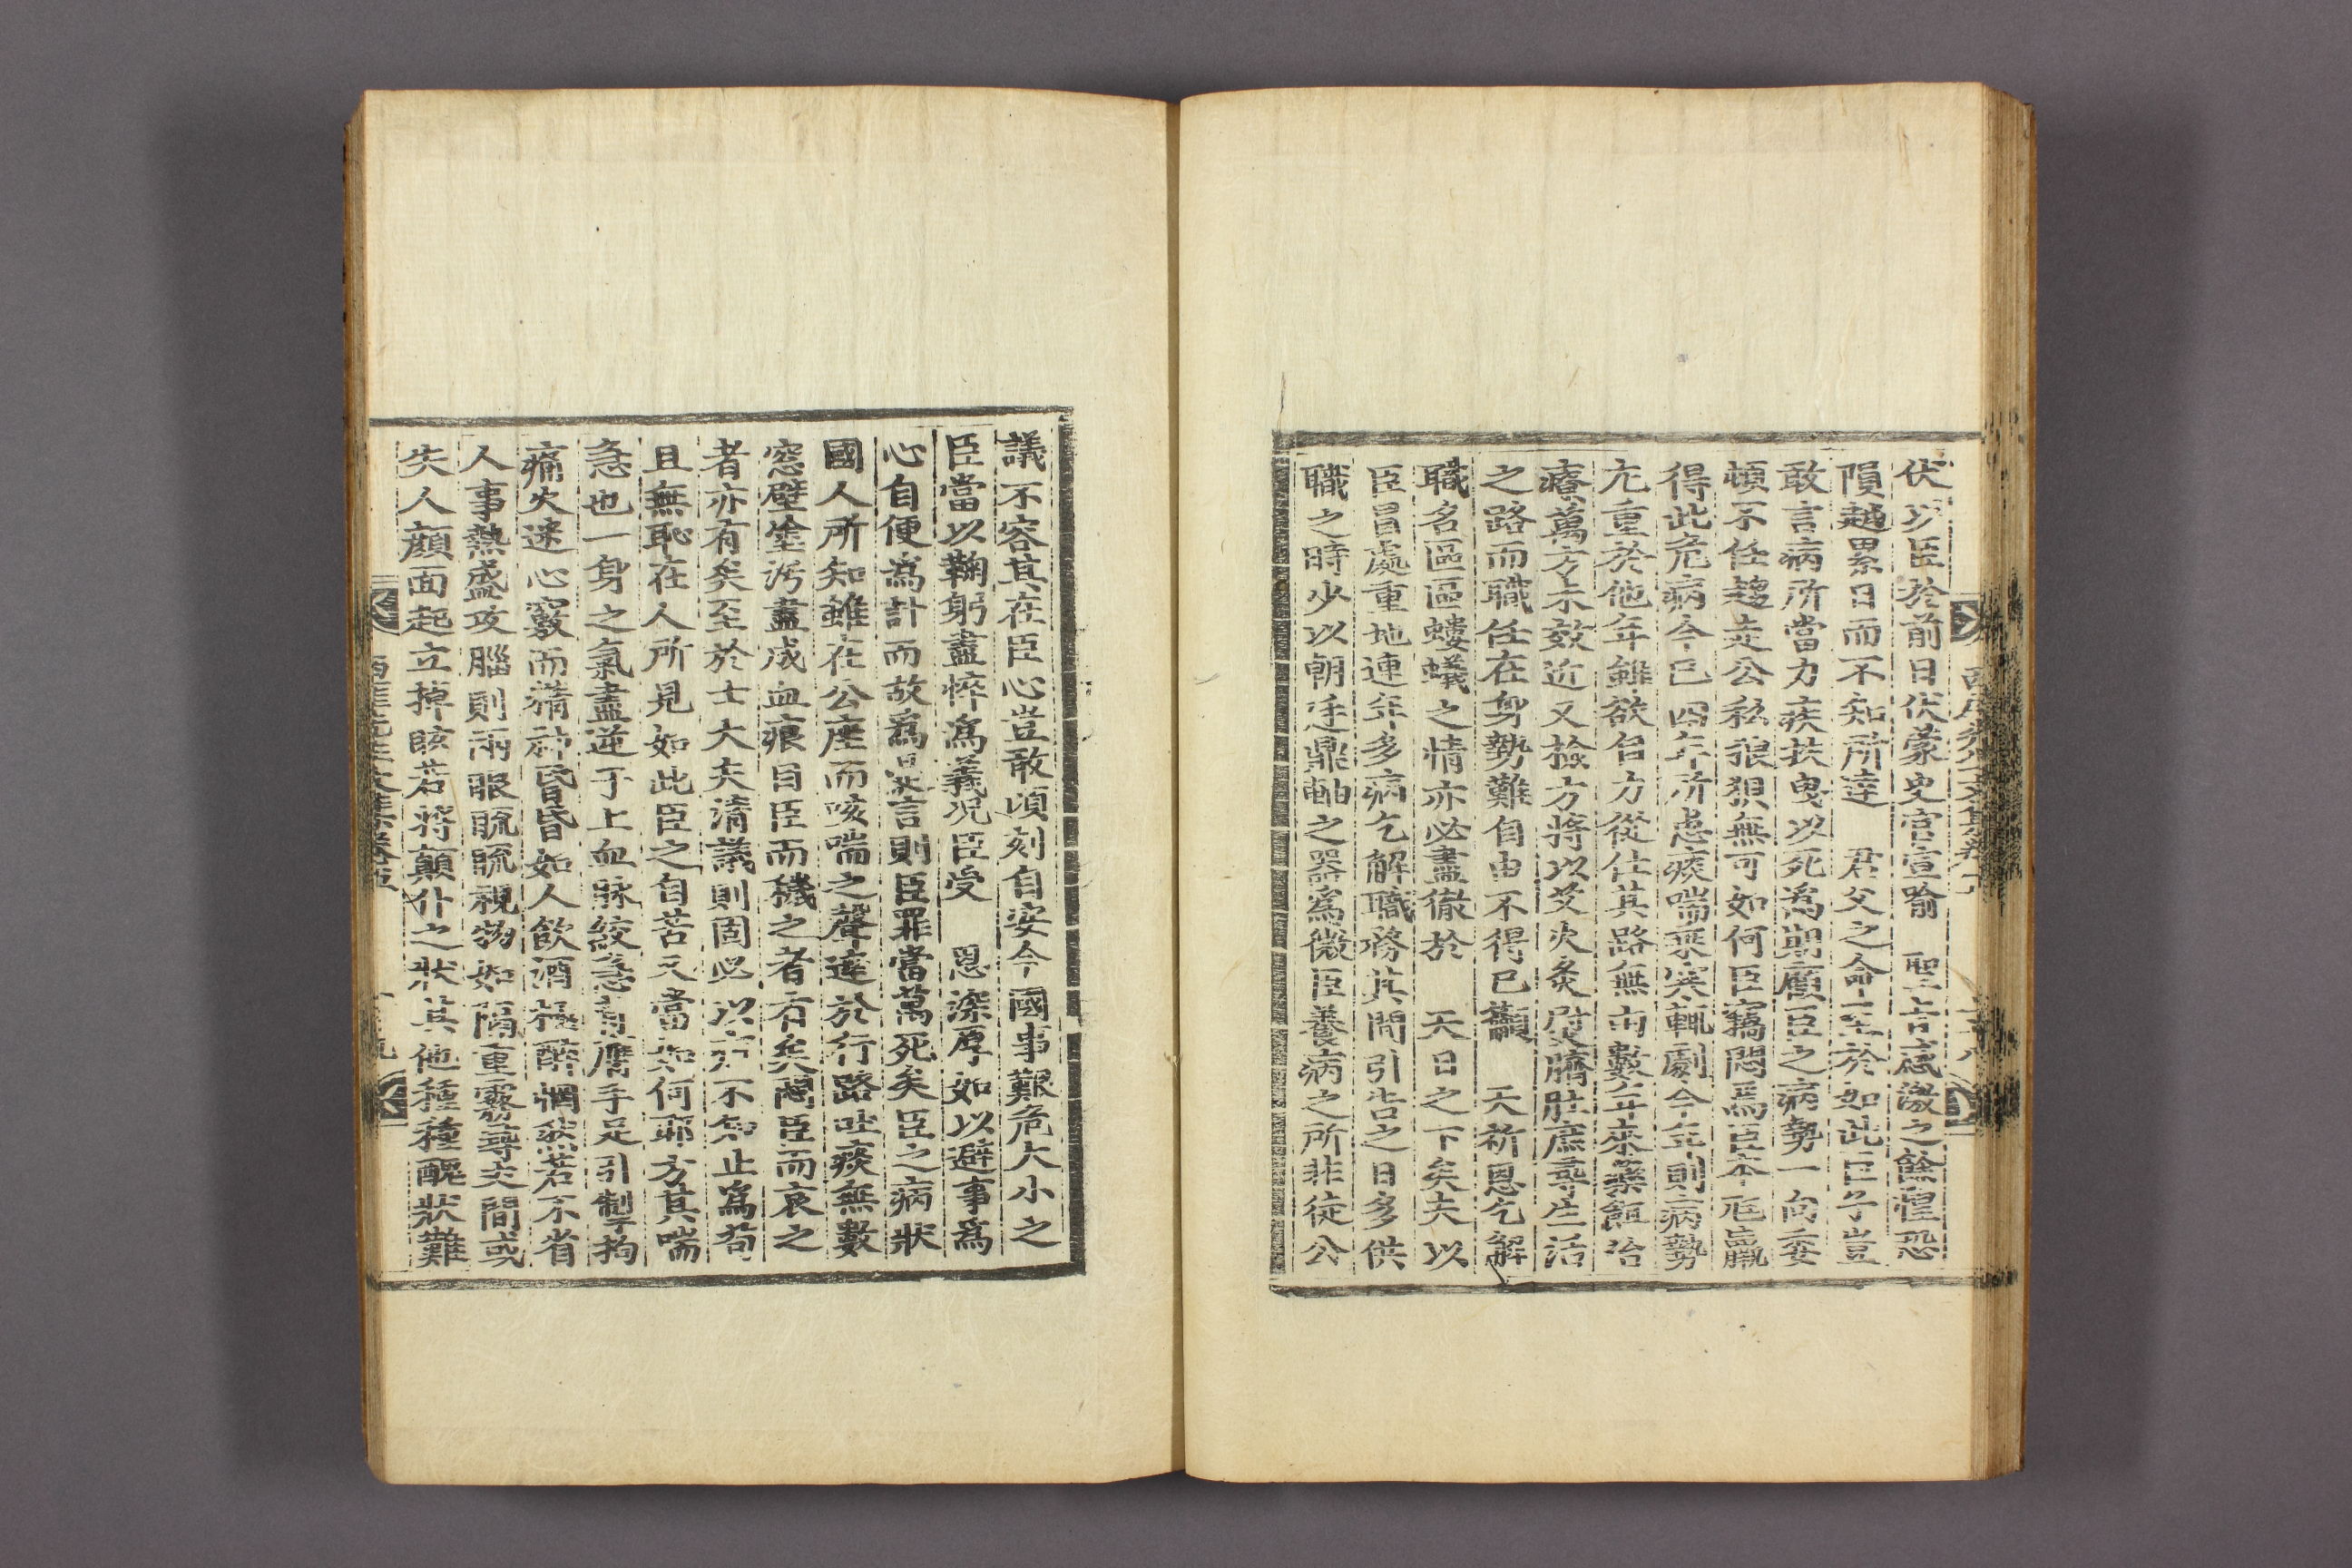 伏以臣於前日伏蒙史官宣喩 聖旨感激之餘惶恐
隕越累日而不知所達 君父之命至於如此臣子豈
敢言病所當力疾扶曳以死爲期顧臣之病勢一向委
頓不任趨走公私狼狽無可如何臣竊悶焉臣本尫羸
得此危病今已四年所患痰喘乘寒輒劇今年則病勢
尤重於他年雖欲召方從仕其路無由數年來藥餌治
療萬方未效近又撿方將以艾火灸熨臍肚庶尋生活
之路而職任在身勢難自由不得已籲 天祈恩乞解
職名區區螻蟻之情亦必盡徹於 天日之下矣夫以
臣冒處重地連年多病乞解職務其間引告之日多供
職之時少以朝廷鼎軸之器爲微臣養病之所非徒公
議不容其在臣心豈敢頃刻自安今國事艱危大小之
臣當以鞠躬盡悴爲義况臣受 恩深厚如以避事爲
心自便爲計而故爲是言則臣罪當萬死矣臣之病狀
國人所知雖在公座而咳喘之聲達於行路吐痰無數
窓壁塗汚盡成血痕目臣而譏之者有矣悶臣而哀之
者亦有矣至於士大夫淸議則固必以不知止爲苟
且無恥在人所見如此臣之自苦又當如何耶方其喘
急也一身之氣盡逆于上血脉絞急膏肓手足引掣拘
痛火迷心竅而精神昏昏如人飮酒極醉惘然若不省
人事熱盛攻腦則兩眼䀮䀮視物如隔重霧尋丈間或
失人顔面起立掉眩若將顚仆之狀其他種種醜狀難
西厓先生文集卷五